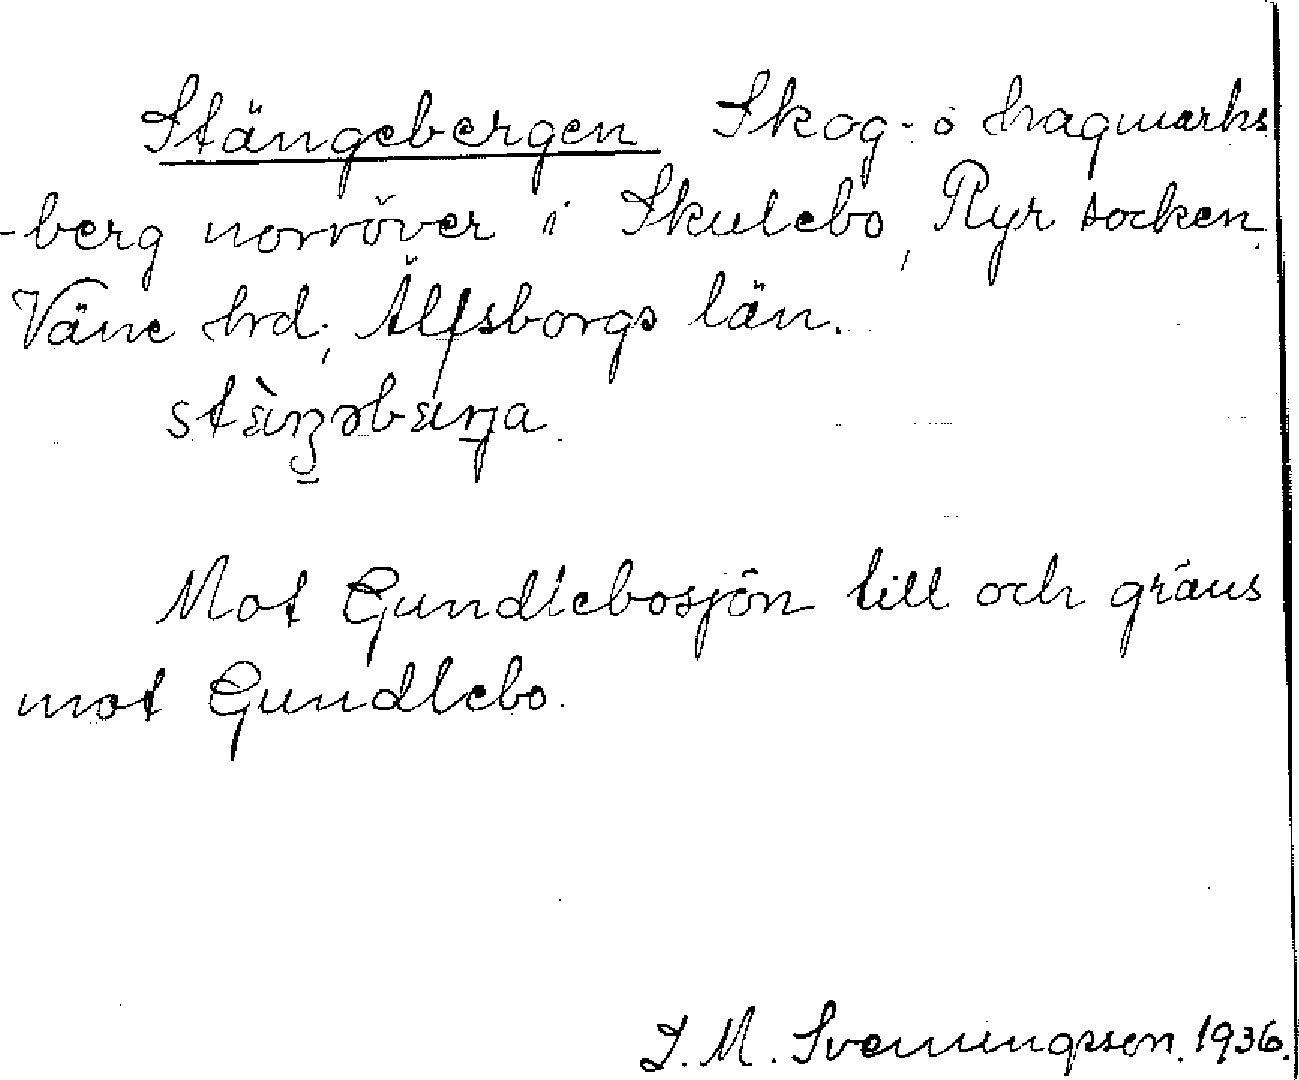 Stängebergen Skog- o hagmarks
-berg norröver i Skulebo, Ryr socken.
Väne hrd; Älfsborgs län.
Mot Gundlebosjön till och gräns
mot Gundlebo.
J. M. Svenningsson. 1936.